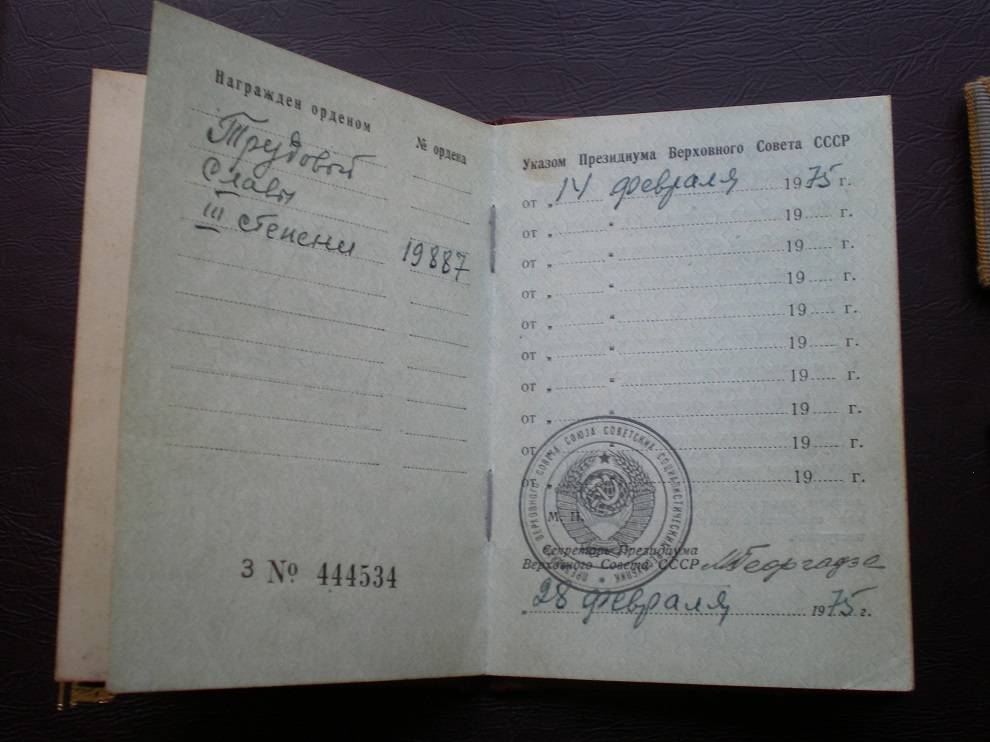 Награжден орденом № ордена
Трудовой
Славы
III степени 19887
З № 444534
Указом Президиума Верховного Совета СССР
от „ 14 “ февраля 1975 г.
от „ “ 19 г.
от „ “ 19 г.
от „ “ 19 г.
от „ “ 19 г.
от „ “ 19 г.
от „ “ 19 г.
от „ “ 19 г.
от „ “ 19 г.
от „ “ 19 г.
ПРЕЗИДИУМ ВЕРХОВНОГО СОВЕТА СОЮЗА СОВЕТСКИХ СОЦИАЛИСТИЧЕСКИХ РЕСПУБЛИК
М. П.
Секретарь Президиума
Верховного Совета СССР МГеоргадзе
„ 28 февраля 1975 г.